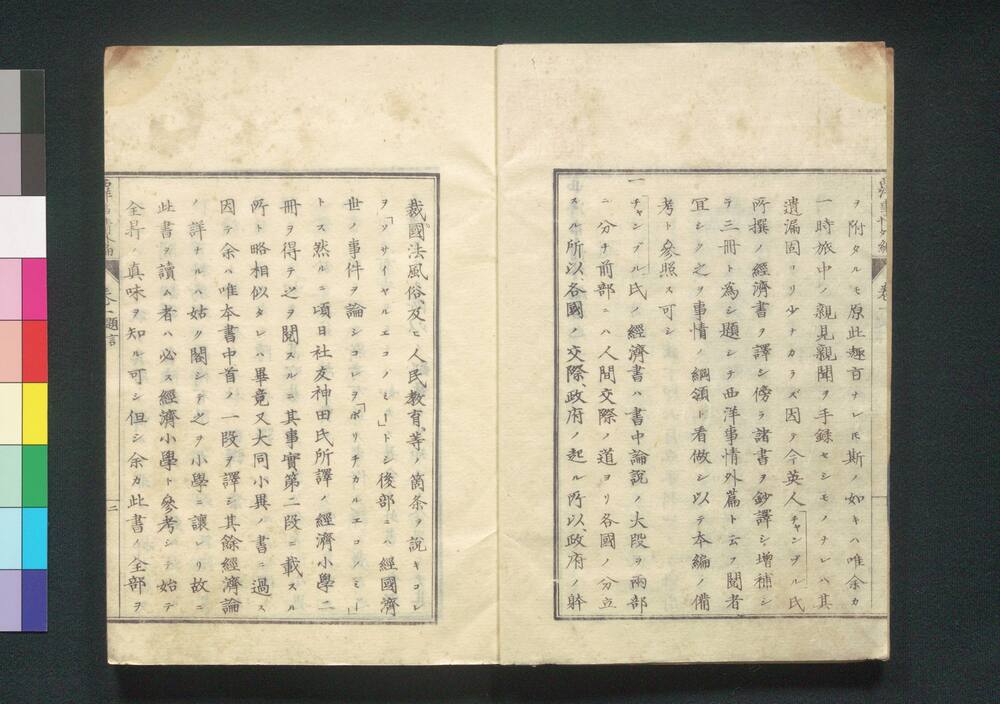 ヲ附タルモ原此趣旨ナレ𪜈斯ノ如キハ唯余カ
一時旅中ノ親見親聞ヲ手録セシモノナレハ其
遺漏固ヨリ少ナカラズ因テ今英人チャンブル氏
所撰ノ經濟書ヲ譯シ傍ラ諸書ヲ鈔譯シ増補シ
テ三冊ト為シ題シテ西洋事情外篇ト云フ閲者
冝シク之ヲ事情ノ綱領ト看做シ以テ本編ノ備
考ト參照ス可シ
一チャンブル氏ノ經濟書ハ書中論説ノ大段ヲ兩部
ニ分チ前部ニハ人間交際ノ道ヨリ各國ノ分立
スル所以、各國ノ交際、政府ノ起ル所以、政府ノ躰
裁、國法風俗、及ヒ人民教育、等ノ箇条ヲ説キコレ
ヲ「ソサイヤルエコノミー」トシ後部ニハ經國濟
世ノ事件ヲ論シコレヲ「ポリチカルエコノミー」
トス然ルニ頃日社友神田氏所譯ノ經濟小學二
冊ヲ得テ之ヲ閲スルニ其事實第二段ニ載スル
所ト略相似タレハ畢竟又大同小異ノ書ニ過ス
因テ余ハ唯本書中首ノ一段ヲ譯シ其餘經濟論
ノ詳ナルハ姑ク閣シテ之ヲ小學ニ讓レリ故ニ
此書ヲ讀ム者ハ必ス經濟小學ト參考シテ始テ
全昇ノ真味ヲ知ル可シ但シ余カ此書ノ全部ヲ
卷一題言
二